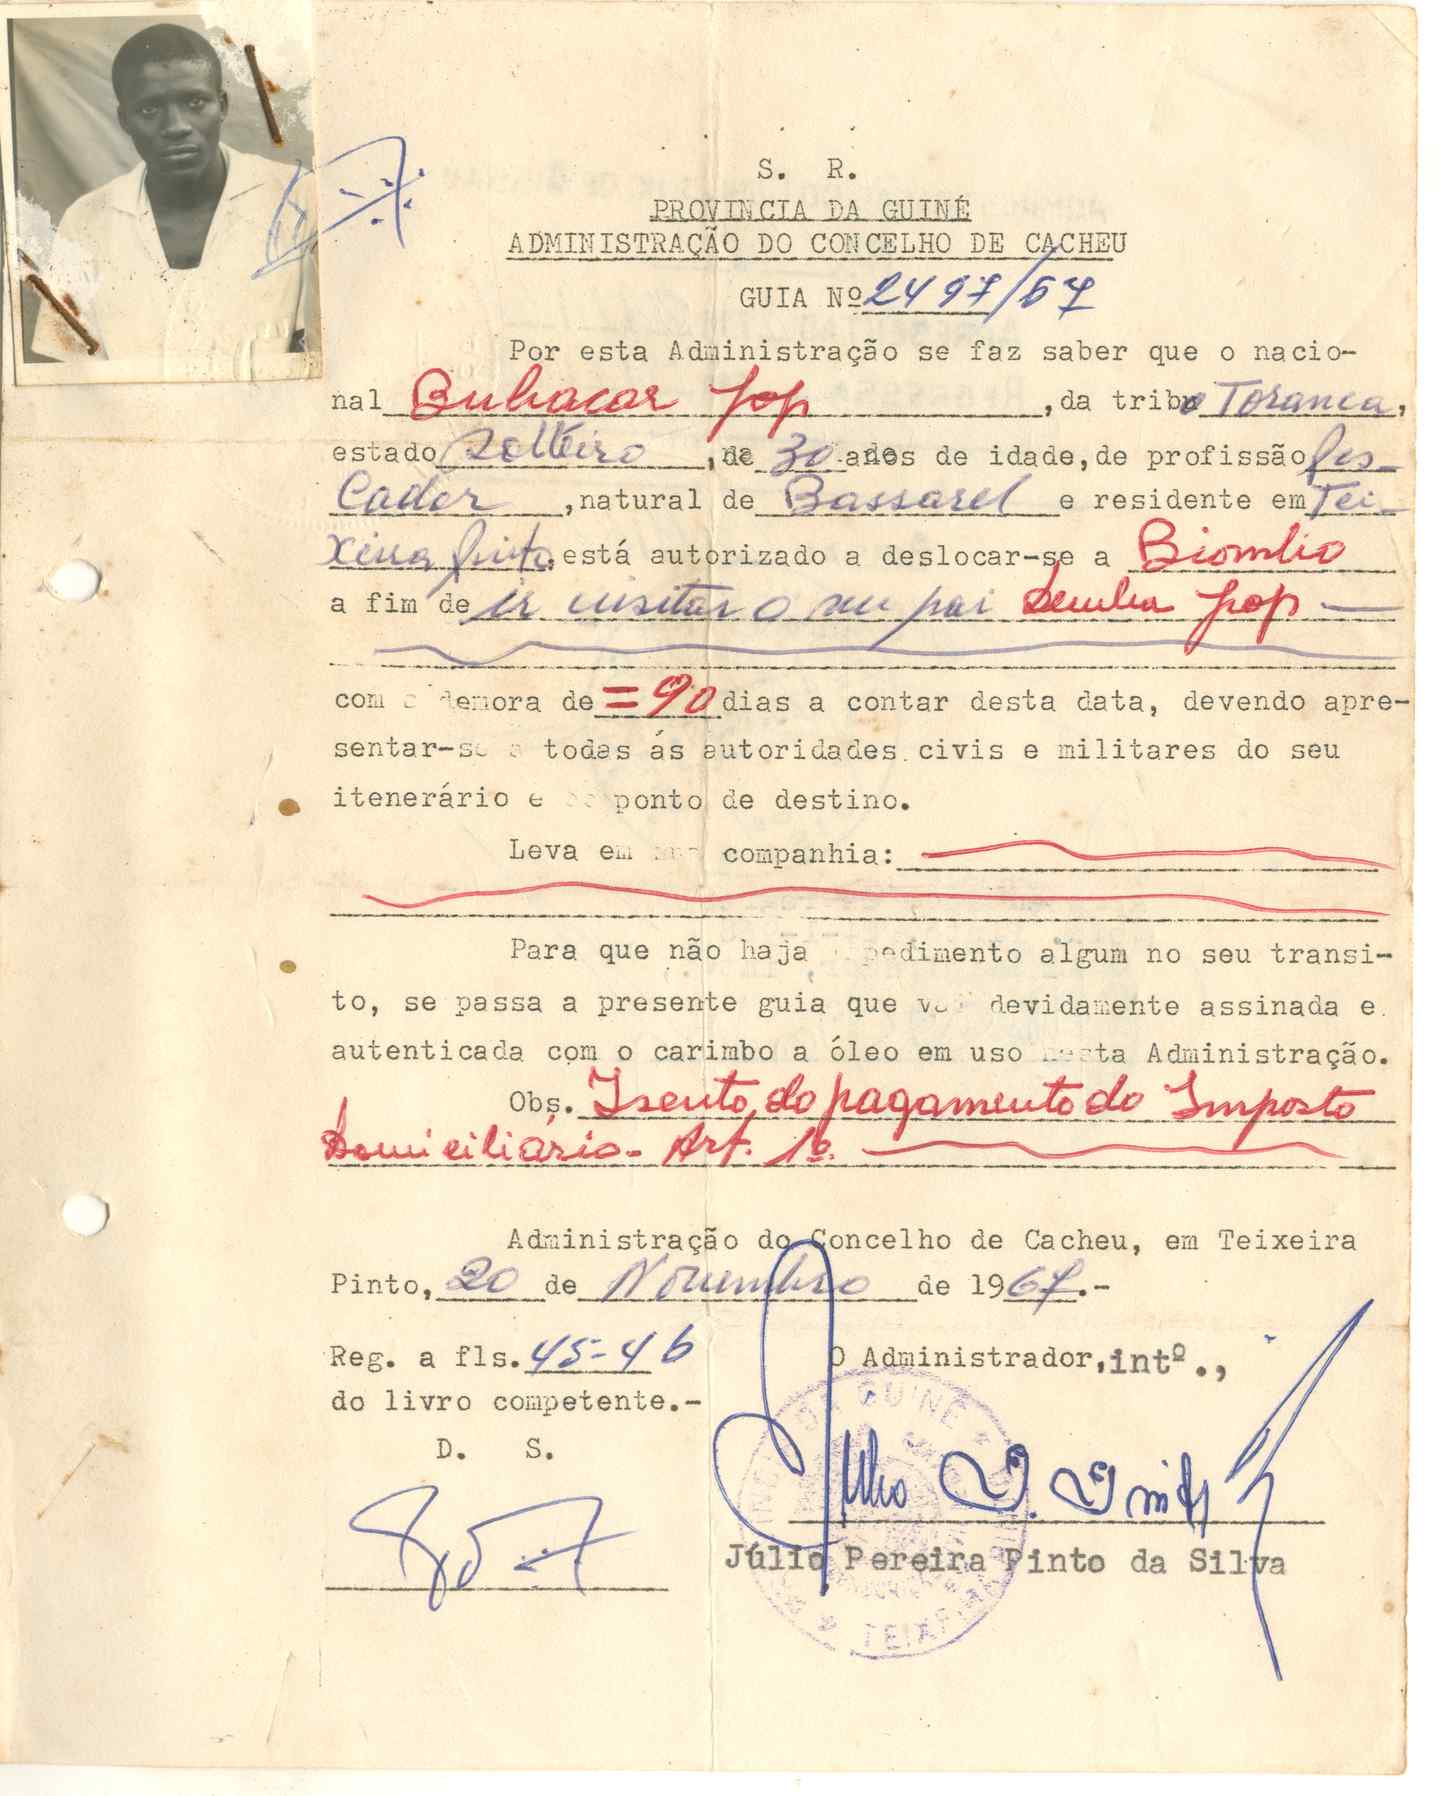 S. R.
PROVINCIA DA GUINÉ
ADMINISTRAÇÃO DO CONCELHO DE CACHEU
GUIA Nº 2497/67
Por esta Administração se faz saber que o nacio-
nal Bubacar Jop, da tribo Toranca,
estado Solteiro, de 30 anos de idade, de profissão Pes-
cador, natural de Bassarel e residente em Tei-
xeira Pinto, está autorizado a deslocar-se a Biombo
a fim de ir visitar o seu pai Demba Jop —
com a demora de =90 dias a contar desta data, devendo apre-
sentar-se a todas ás autoridades civis e militares do seu
itenerário e ponto de destino.
Leva em sua companhia:
Para que não haja impedimento algum no seu transi-
to, se passa a presente guia que vai devidamente assinada e
autenticada com o carimbo a óleo em uso nesta Administração.
Obs. Isento do pagamento do Imposto
Domiciliário - Art. 1º.
Administração do Concelho de Cacheu, em Teixeira
Pinto, 20 de Novembro de 1967.-
Reg. a fls. 45-46
O Administrador, intº.,
do livro competente.-
D. S.
Júlio Pereira Pinto da Silva